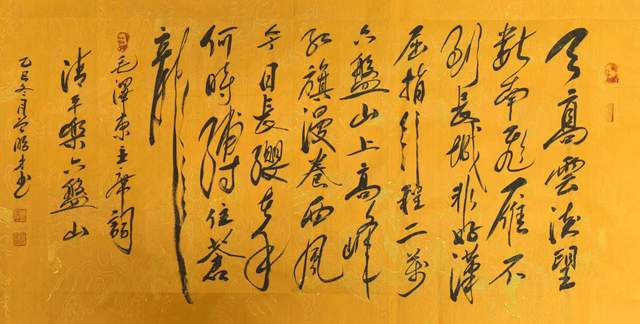 天高雲淡望
断南飛雁不
到長城非好漢
屈指行程二萬
六盤山上高峰
紅旗漫卷西風
今日長纓在手
何時縛住蒼
龍
毛澤東主席詞
清平樂六盤山
乙巳冬月